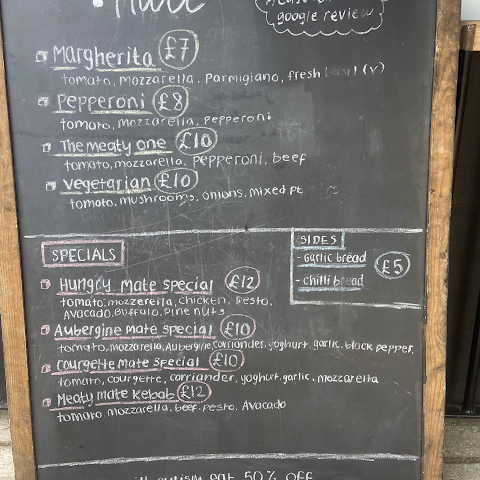 google review
Margherita £7
tomato, mozzarella, Parmigiano, fresh basil (v)
Pepperoni £8
tomato, mozzarella, pepperoni
The meaty one £10
tomato, mozzarella, pepperoni, beef
vegetarian £10
tomato, mushrooms, onions, mixed
SPECIALS
Hungry mate special £12
tomato, mozzerella, chicken, pesto,
Avocado, Buffalo, Pine nuts
Aubergine mate special £10
tomato, mozzarella, Aubergine, corriander, yoghurt, garlic, black pepper.
courgette mate special £10
tomato, courgette, corriander, yoghurt, garlic, mozzarella
Meaty mate kebab £12
tomato, mozzarella, beef, pesto, Avocado
SIDES
- garlic bread
- chilli bread
£5
50% OFF